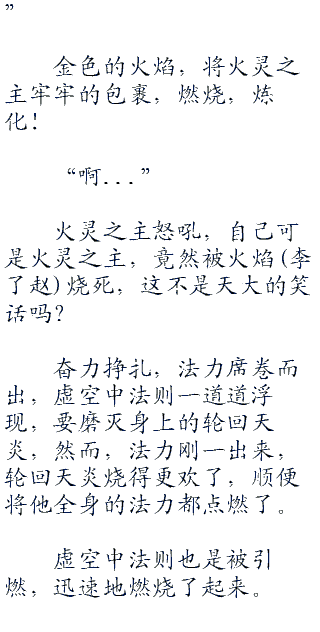 ”
金色的火焰，将火灵之
主牢牢的包裹，燃烧，炼
化！
“啊...”
火灵之主怒吼，自己可
是火灵之主，竟然被火焰(李
了赵)烧死，这不是天大的笑
话吗？
奋力挣扎，法力席卷而
出，虚空中法则一道道浮
现，要磨灭身上的轮回天
炎，然而，法力刚一出来，
轮回天炎烧得更欢了，顺便
将他全身的法力都点燃了。
虚空中法则也是被引
燃，迅速地燃烧了起来。